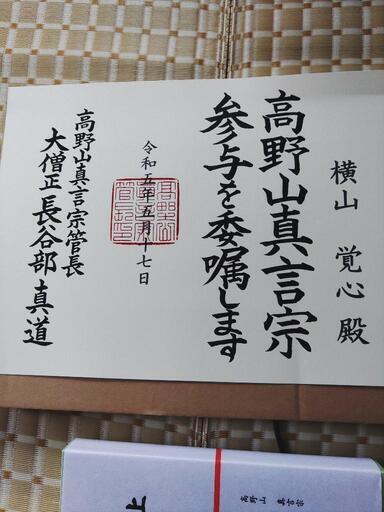 横山 覚心 殿
高野山真言宗
参与を委嘱します
令和五年五月十七日
高野山真言宗管長
大僧正 長谷部 真道
上
高野山 真言宗